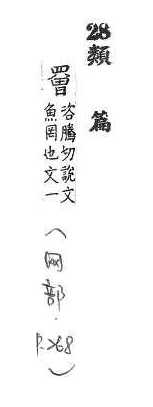 28 類篇
罾 咨騰切說文
魚罔也文一
(网部.P.268)